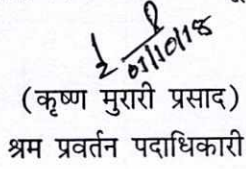 01/10/18
(कृष्ण मुरारी प्रसाद)
श्रम प्रवर्तन पदाधिकारी